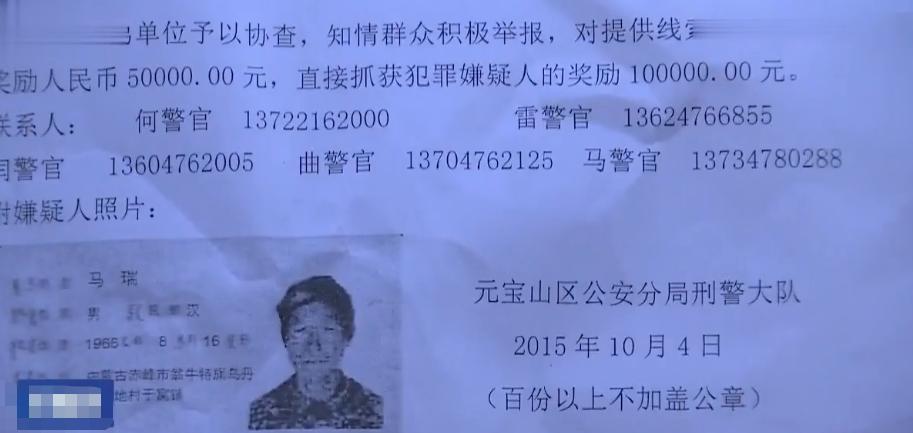 单位予以协查，知情群众积极举报，对提供线
奖励人民币 50000.00 元，直接抓获犯罪嫌疑人的奖励 100000.00 元。
联系人： 何警官 13722162000 雷警官 13624766855
警官 13604762005 曲警官 13704762125 马警官 13734780288
附嫌疑人照片：
马 瑞
男 汉
1966 8 16
内蒙古赤峰市翁牛特旗乌丹
地村于窝铺
元宝山区公安分局刑警大队
2015 年 10 月 4 日
（百份以上不加盖公章）